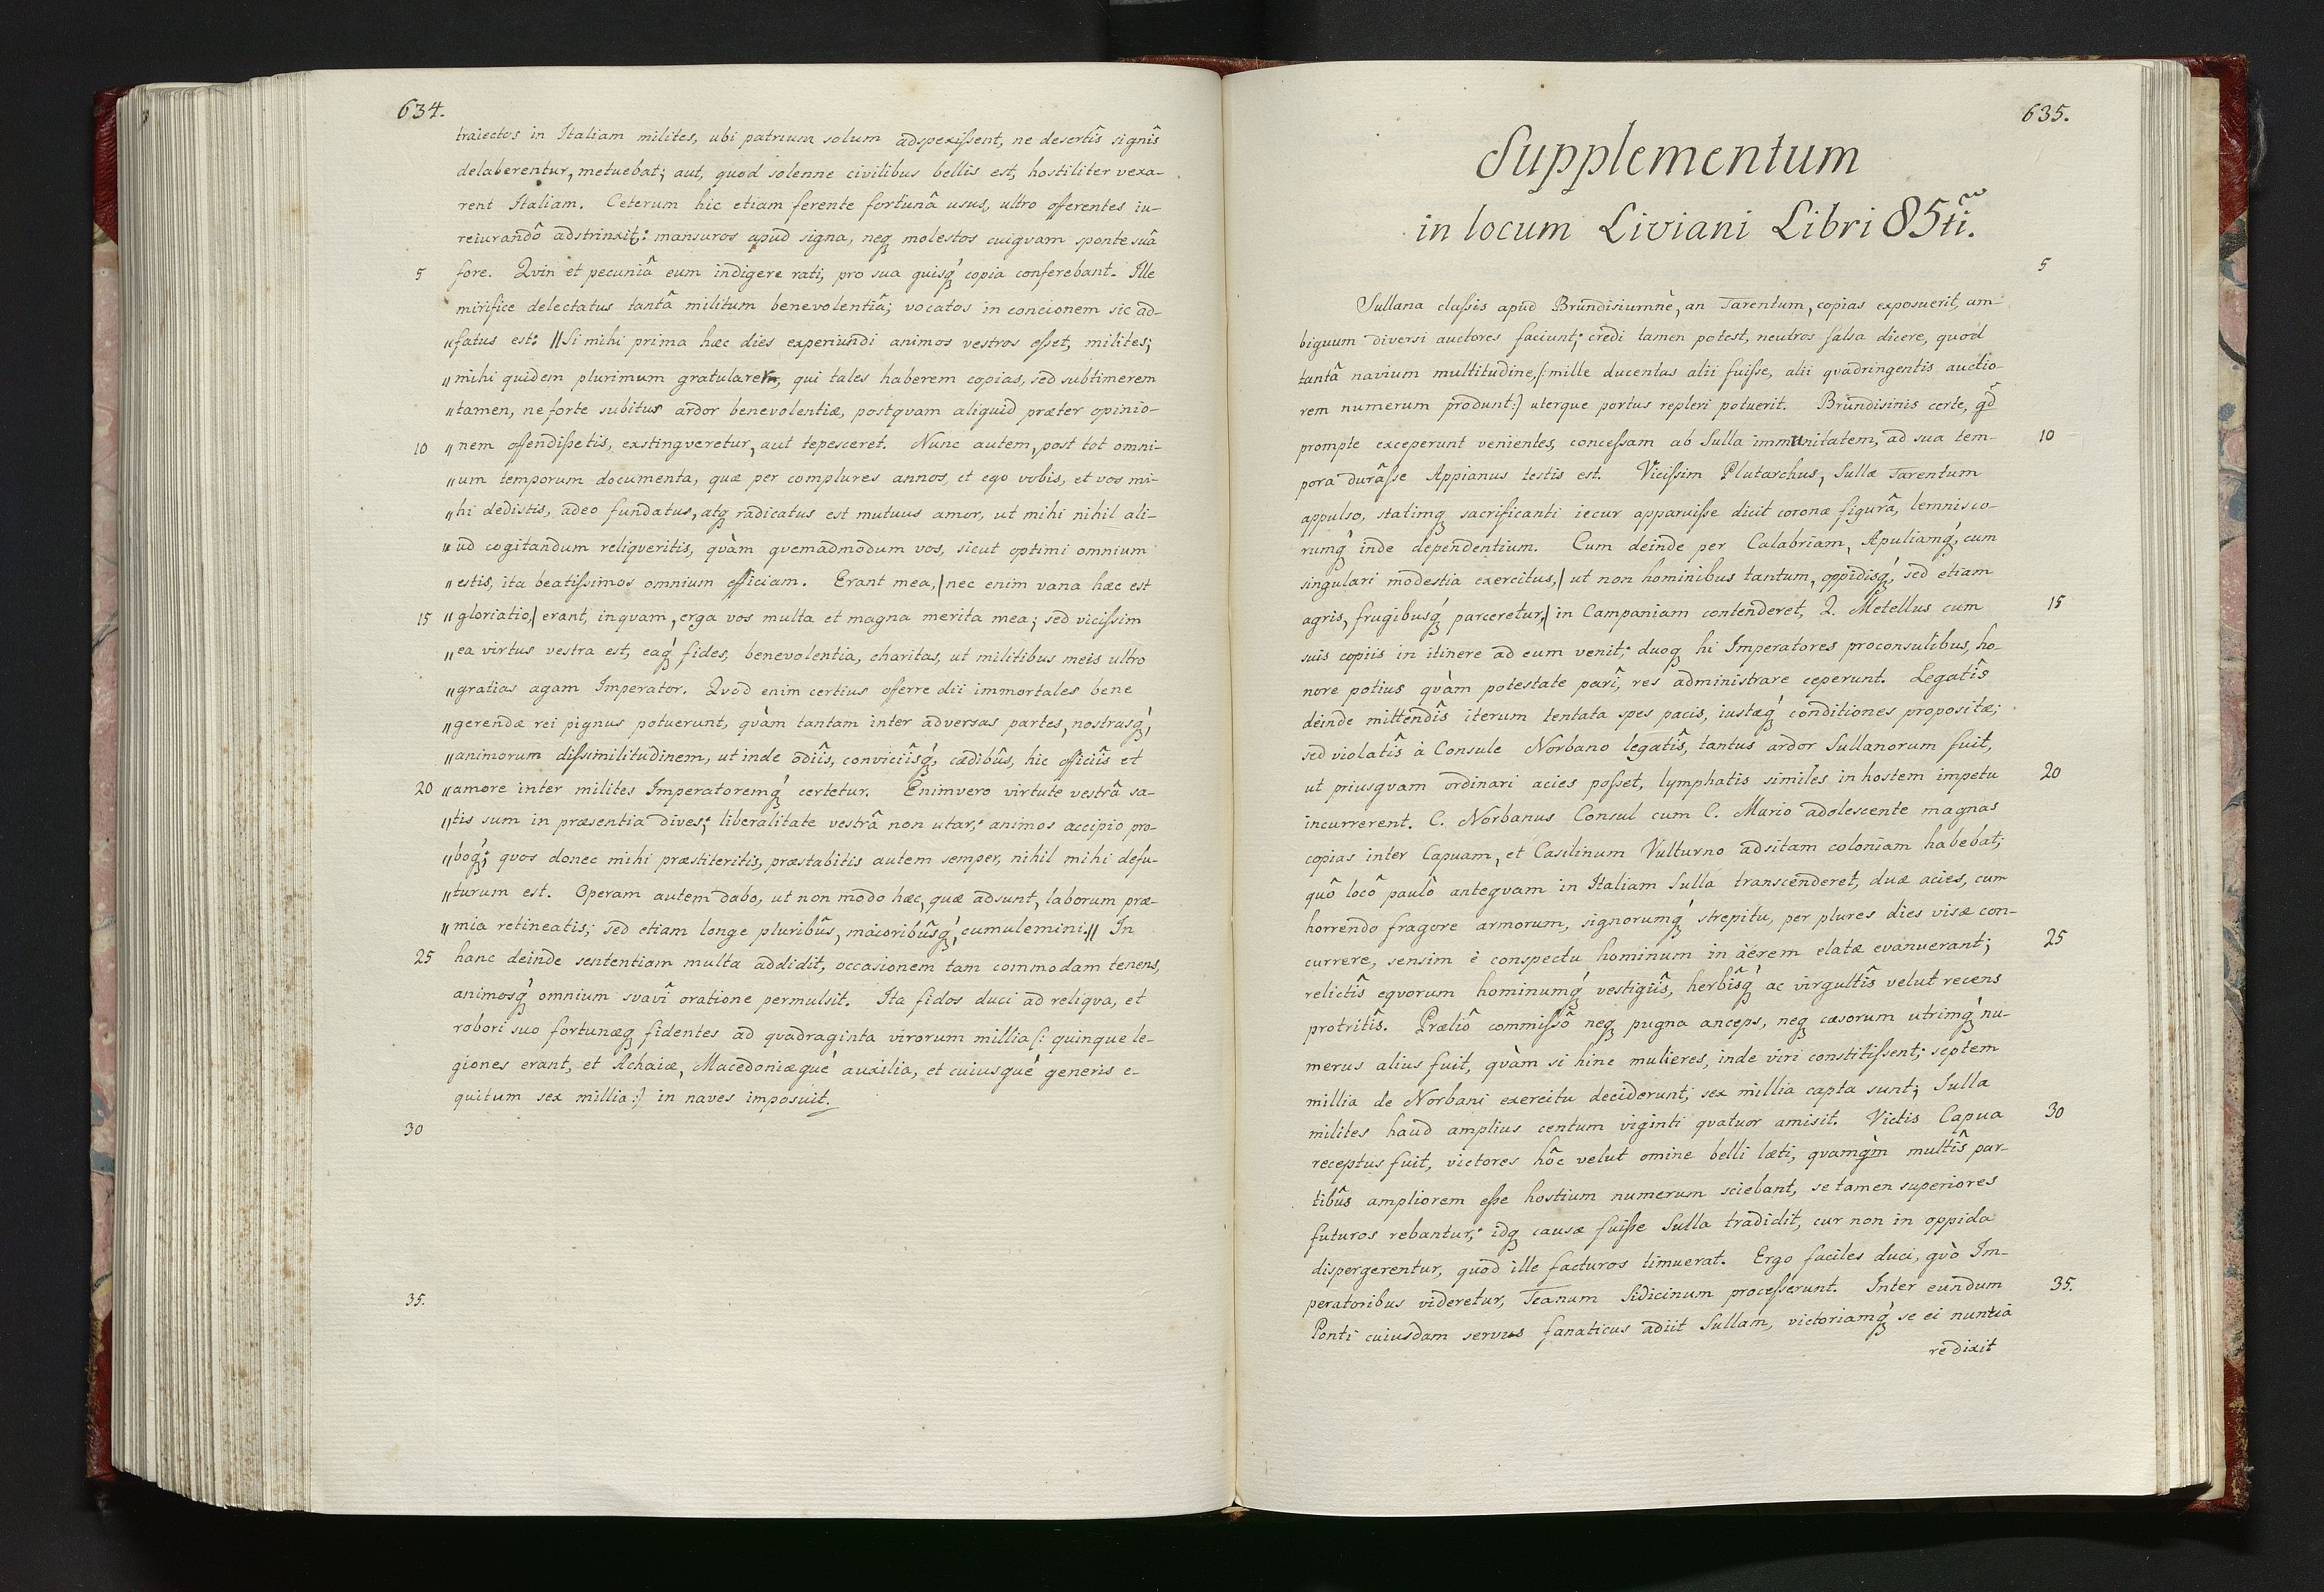 634.
traiectos in Italiam milites, ubi patrium solum adspexißent, ne desertîs signîs
delaberentur, metuebat; aut, quod solenne civilibus bellis est, hostiliter vexa-
rent Italiam. Ceterum hic etiam ferente fortunâ usus, ultro offerentes iu-
reiurandô adstrinxit: mansuros apud signa, neq molestos cuiquam sponte suâ
5 fore. Qvin et pecuniâ eum indigere rati, pro sua quisq́ copia conferebant. Ille
mirifice delectatus tantâ militum benevolentiâ; vocatos in concionem sic ad-
„fatus est: „Si mihi prima hæc dies experiundi animos vestros eßet, milites;
„mihi quidem plurimum gratularer, qui tales haberem copias, sed subtimerem
„tamen, ne forte subitus ardor benevolentiæ, postqvam aliquid præter opinio-
10 „nem offendißetis, exstingveretur, aut tepesceret. Nunc autem, post tot omni-
„um temporum documenta, quæ per complures annos, et ego vobis, et vos mi-
„hi dedistis, adeo fundatus, atq radicatus est mutuus amor, ut mihi nihil ali-
„ud cogitandum reliqveritis, qvàm qvemadmodum vos, sicut optimi omnium
„estis, ita beatißimos omnium efficiam. Erant mea,/ nec enim vana hæc est
15 „gloriatio,/ erant, inquam, erga vos multa et magna merita mea; sed vicißim
„ea virtus vestra est, eaq́ fides, benevolentia, charitas, ut militibus meis ultro
„gratias agam Imperator. Qvod enim certius offerre dii immortales bene
„gerendæ rei pignus potuerunt, qvàm tantam inter adversas partes, nostrasq́,
„animorum dißimilitudinem, ut inde odîîs, convicîîsq́, cædibûs, hic officîîs et
20 „amore inter milites Imperatoremq́ certetur. Enimvero virtute vestrâ sa-
„tis sum in præsentia dives; liberalitate vestrâ non utar; animos accipio pro-
„boq́; quos donec mihi præstiteritis, præstabitis autem semper, nihil mihi defu-
„turum est. Operam autem dabo, ut non modo hæc, quæ adsunt, laborum præ-
„mia retineatis; sed etiam longe pluribûs, maioribûsq́, cumulemini.„ In
25 hanc deinde sententiam multa addidit, occasionem tam commodam tenens,
animosq́ omnium svavî oratione permulsit. Ita fidos duci ad reliqva, et
robori suo fortunæq fidentes ad qvadraginta virorum millia (: quinque le-
giones erant, et Achaiæ, Macedoniæqué auxilia, et cuiusqué generis e-
quitum sex millia :) in naves imposuit.
30
35.
635.
Supplementum
in locum Liviani Libri 85ti.
5
Sullana claßis apud Brundisiumnè, an Tarentum, copias exposuerit, am-
biguum diversi auctores faciunt; credi tamen potest, neutros falsa dicere, quod
tantâ navium multitudine, (: mille ducentas alii fuiße, alii qvadringentis auctio-
rem numerum produnt :) uterque portus repleri potuerit. Brundisinis certe, qd
prompte exceperunt venientes, conceßam ab Sulla immunitatem, ad sua tem- 10
pora durâße Appianus testis est. Vicißim Plutarchus, Sullæ Tarentum
appulso, statimq sacrificanti iecur apparuiße dicit coronæ figurâ, lemnisco-
rumq́ inde dependentium. Cum deinde per Calabriam, Apuliamq́, cum
singulari modestia exercitus,/ ut non hominibus tantum, oppidisq́, sed etiam
agris, frugibusq́ parceretur,/ in Campaniam contenderet, Q. Metellus cum 15
suis copiis in itinere ad eum venit; duoq hi Imperatores proconsulibus, ho-
nore potius qvàm potestate parî, res administrare ceperunt. Legatîs
deinde mittendîs iterum tentata spes pacis, iustæq́ conditiones propositæ;
sed violatîs à Consule Norbano legatîs, tantus ardor Sullanorum fuit,
ut priusqvam ordinari acies poßet, lymphatis similes in hostem impetu 20
incurrerent. C. Norbanus Consul cum C. Mario adolescente magnas
copias inter Capuam, et Casilinum Vulturno adsitam coloniam habebat;
quô locô paulô anteqvam in Italiam Sulla transcenderet, duæ acies, cum
horrendo fragore armorum, signorumq́ strepitu, per plures dies visæ con-
currere, sensim è conspectu hominum in àérem elatæ evanuerant; 25
relictîs eqvorum hominumq́ vestigiîs, herbîsq́ ac virgultîs velut recens
protritîs. Præliô commißô neq pugna anceps, neq cæsorum utrimq́ nu-
merus alius fuit, qvàm si hinc mulieres, inde viri constitißent; septem
millia de Norbani exercitu deciderunt, sex millia capta sunt; Sulla
milites haud amplius centum viginti qvatuor amisit. Victis Capua 30
receptus fuit, victores hôc velut omine belli læti, qvamqm multîs par-
tibûs ampliorem eße hostium numerum sciebant, se tamen superiores
futuros rebantur; idq causæ fuiße Sulla tradidit, cur non in oppida
dispergerentur, quod ille facturos timuerat. Ergo faciles duci, qvò Im-
peratoribus videretur, Teanum Sidicinum proceßerunt. Inter eundum 35.
Ponti cuiusdam servus fanaticus adiit Sullam, victoriamq́ se ei nuntia
re dixit